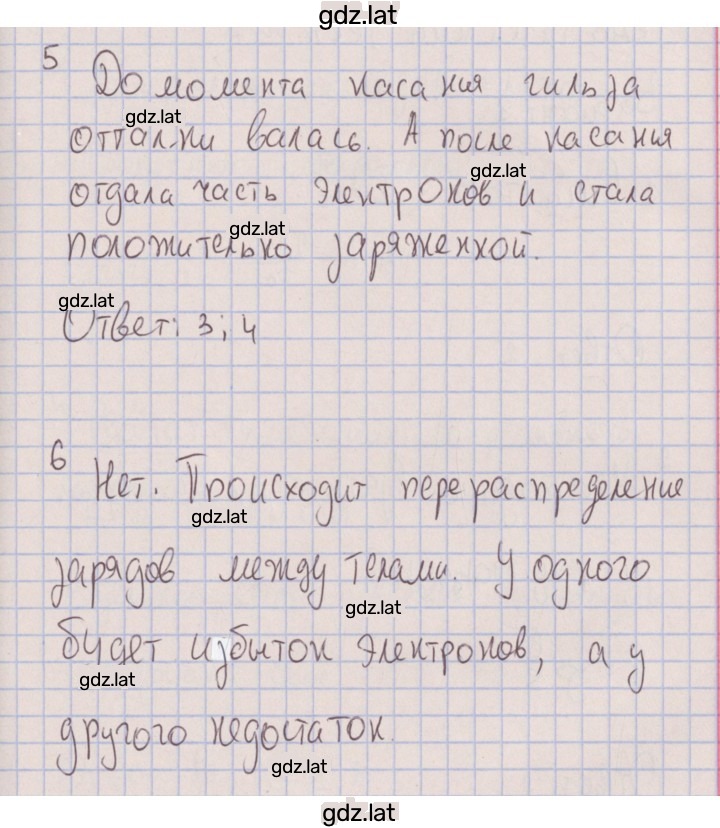 gdz.lat
5 До момента касания гильза
gdz.lat
отталкивалась. А после касания
gdz.lat
отдала часть электронов и стала
gdz.lat
положительно заряженной.
gdz.lat
Ответ: 3; 4
6 Нет. Происходит перераспределение
gdz.lat
зарядов между телами. У одного
gdz.lat
будет избыток электронов, а у
gdz.lat
другого недостаток.
gdz.lat
gdz.lat